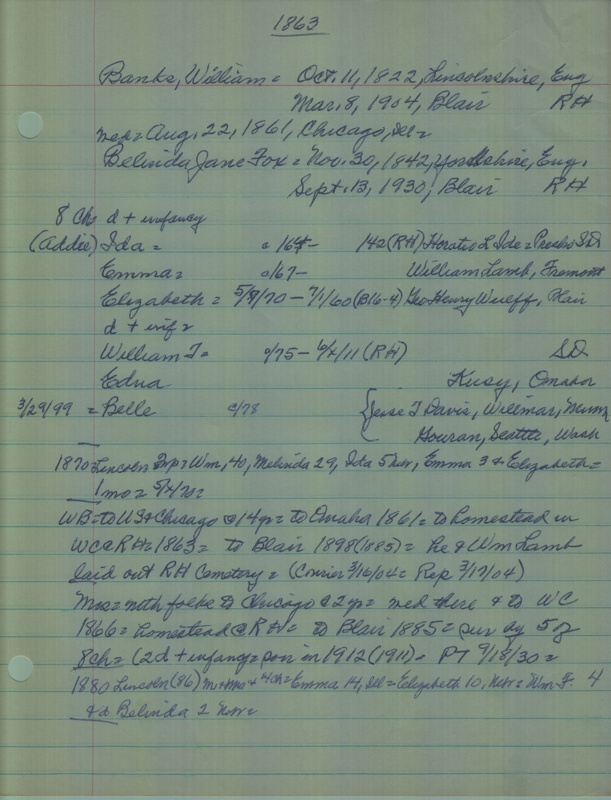 1863
Banks, William = Oct. 11, 1822, Lincolnshire, Eng
Mar. 8, 1904, Blair RH
med = Aug. 22, 1861, Chicago, Ill =
Belinda Jane Fox = Nov. 30, 1842, Yorkshire, Eng.
Sept. 13, 1930, Blair RH
8 Ch d + infancy
(Addie) Ida = c/64- 142 (RH) Horatio L Ide = SD
Emma = c/67- William Lamb, Fremont
Elizabeth = 5/9/70 - 7/1/60 (B16-4) Geo Henry Wulff, Blair
d + inf 2
William T = c/75 - 6/x/11 (RH) SD
Edna Kusy, Omaha
3/29/99 = Belle c/78 {Jesse T Davis, Willmar, Minn
Houran, Seattle, Wash
1870 Lincoln Wm, 40, Melinda 29, Ida 5 Nev, Emma 3 & Elizabeth =
1 mo = 5/x/70 =
WB = to US & Chicago @ 14 yr = to Omaha 1861 = to homestead in
WC @ RH = 1863 = to Blair 1898 (1885) = he & Wm Lamb
laid out RH Cemetery = (Courier 3/16/04 = Rep 3/17/04)
Mrs = with folks to Chicago @ 2 yr = med there & to WC
1866 = homestead @ RH = to Blair 1885 = sur by 5 of
8 ch = (2 d + infancy = son in 1912 (1911) = PT 9/18/30 =
1880 Lincoln (86) m + mo + 4 ch = Emma 14, Ill = Elizabeth 10, Nebr = Wm F. 4
& d Belinda 2 Nebr =